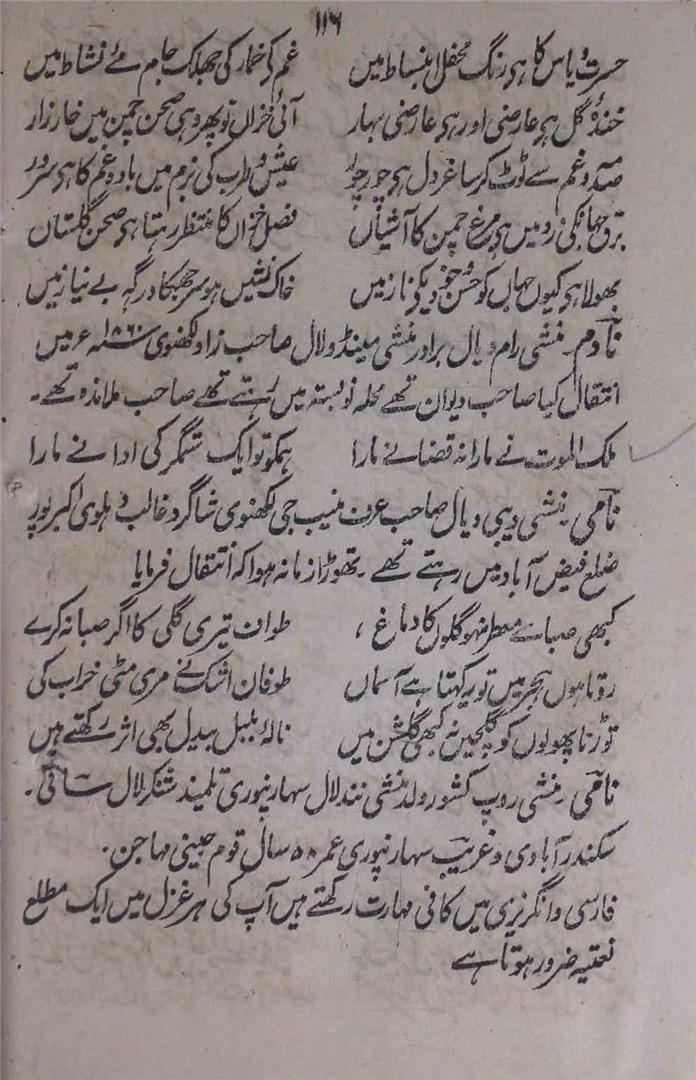 ۱۱۶
حسرت و یاس کا ہی رنگ محفل انبساط میں غم کے خمار کی جھلک جام مئے نشاط میں
خندۂ گل ہی عارضی اور ہی عارضی بہار آئی خزاں تو پھر وہی صحن چمن میں خارزار
صدمۂ غم سے ٹوٹ کر ساغر دل ہی چور چور عیش و طرب کی بزم میں بادۂ غم کا ہی سرور
برق جہاں کی زد میں ہی مرغ چمن کا آشیاں فصل خزاں کا منتظر رہتا ہی صحن گلستاں
بھولا ہی کیوں جہاں کو حسن خودی کے ناز میں خاک نشیں ہو سر جھکا درگہ بے نیاز میں
نادم۔ منشی رام دیال برادر منشی مینڈولال صاحب زار لکھنوی ۱۸۶۰ء میں
انتقال کیا صاحب دیوان تھے محلہ نوبستہ میں رہتے تھے صاحب تلامذہ تھے۔
ملک الموت نے مارا نہ قضا نے مارا ہمکو تو ایک ستمگر کی ادا نے مارا
نامی۔ منشی دیبی دیال صاحب عرف منیب جی لکھنوی شاگرد غالب دہلوی اکبرپور
ضلع فیض آباد میں رہتے تھے۔ تھوڑا زمانہ ہوا کہ انتقال فرمایا
کبھی صبا سے معطر نہو گلوں کا دماغ ، طواف تیری گلی کا اگر صبا نہ کرے
روتا ہوں ہجر میں تو یہ کہتا ہے آسماں طوفان اشک نے مری مٹی خراب کی
توڑنا پھولوں کو گلچیں نہ کبھی گلشن میں نالۂ بلبل بیدل بھی اثر رکھتے ہیں
نامی۔ منشی روپ کشور ولد منشی نندلال سہارنپوری تلمیذ شنکر لال ساقی۔
سکندرآبادی و غریب سہارنپوری عمر ۵۰ سال قوم جینی مہاجن۔
فارسی و انگریزی میں کافی مہارت رکھتے ہیں آپ کی ہر غزل میں ایک مطلع
نعتیہ ضرور ہوتا ہے